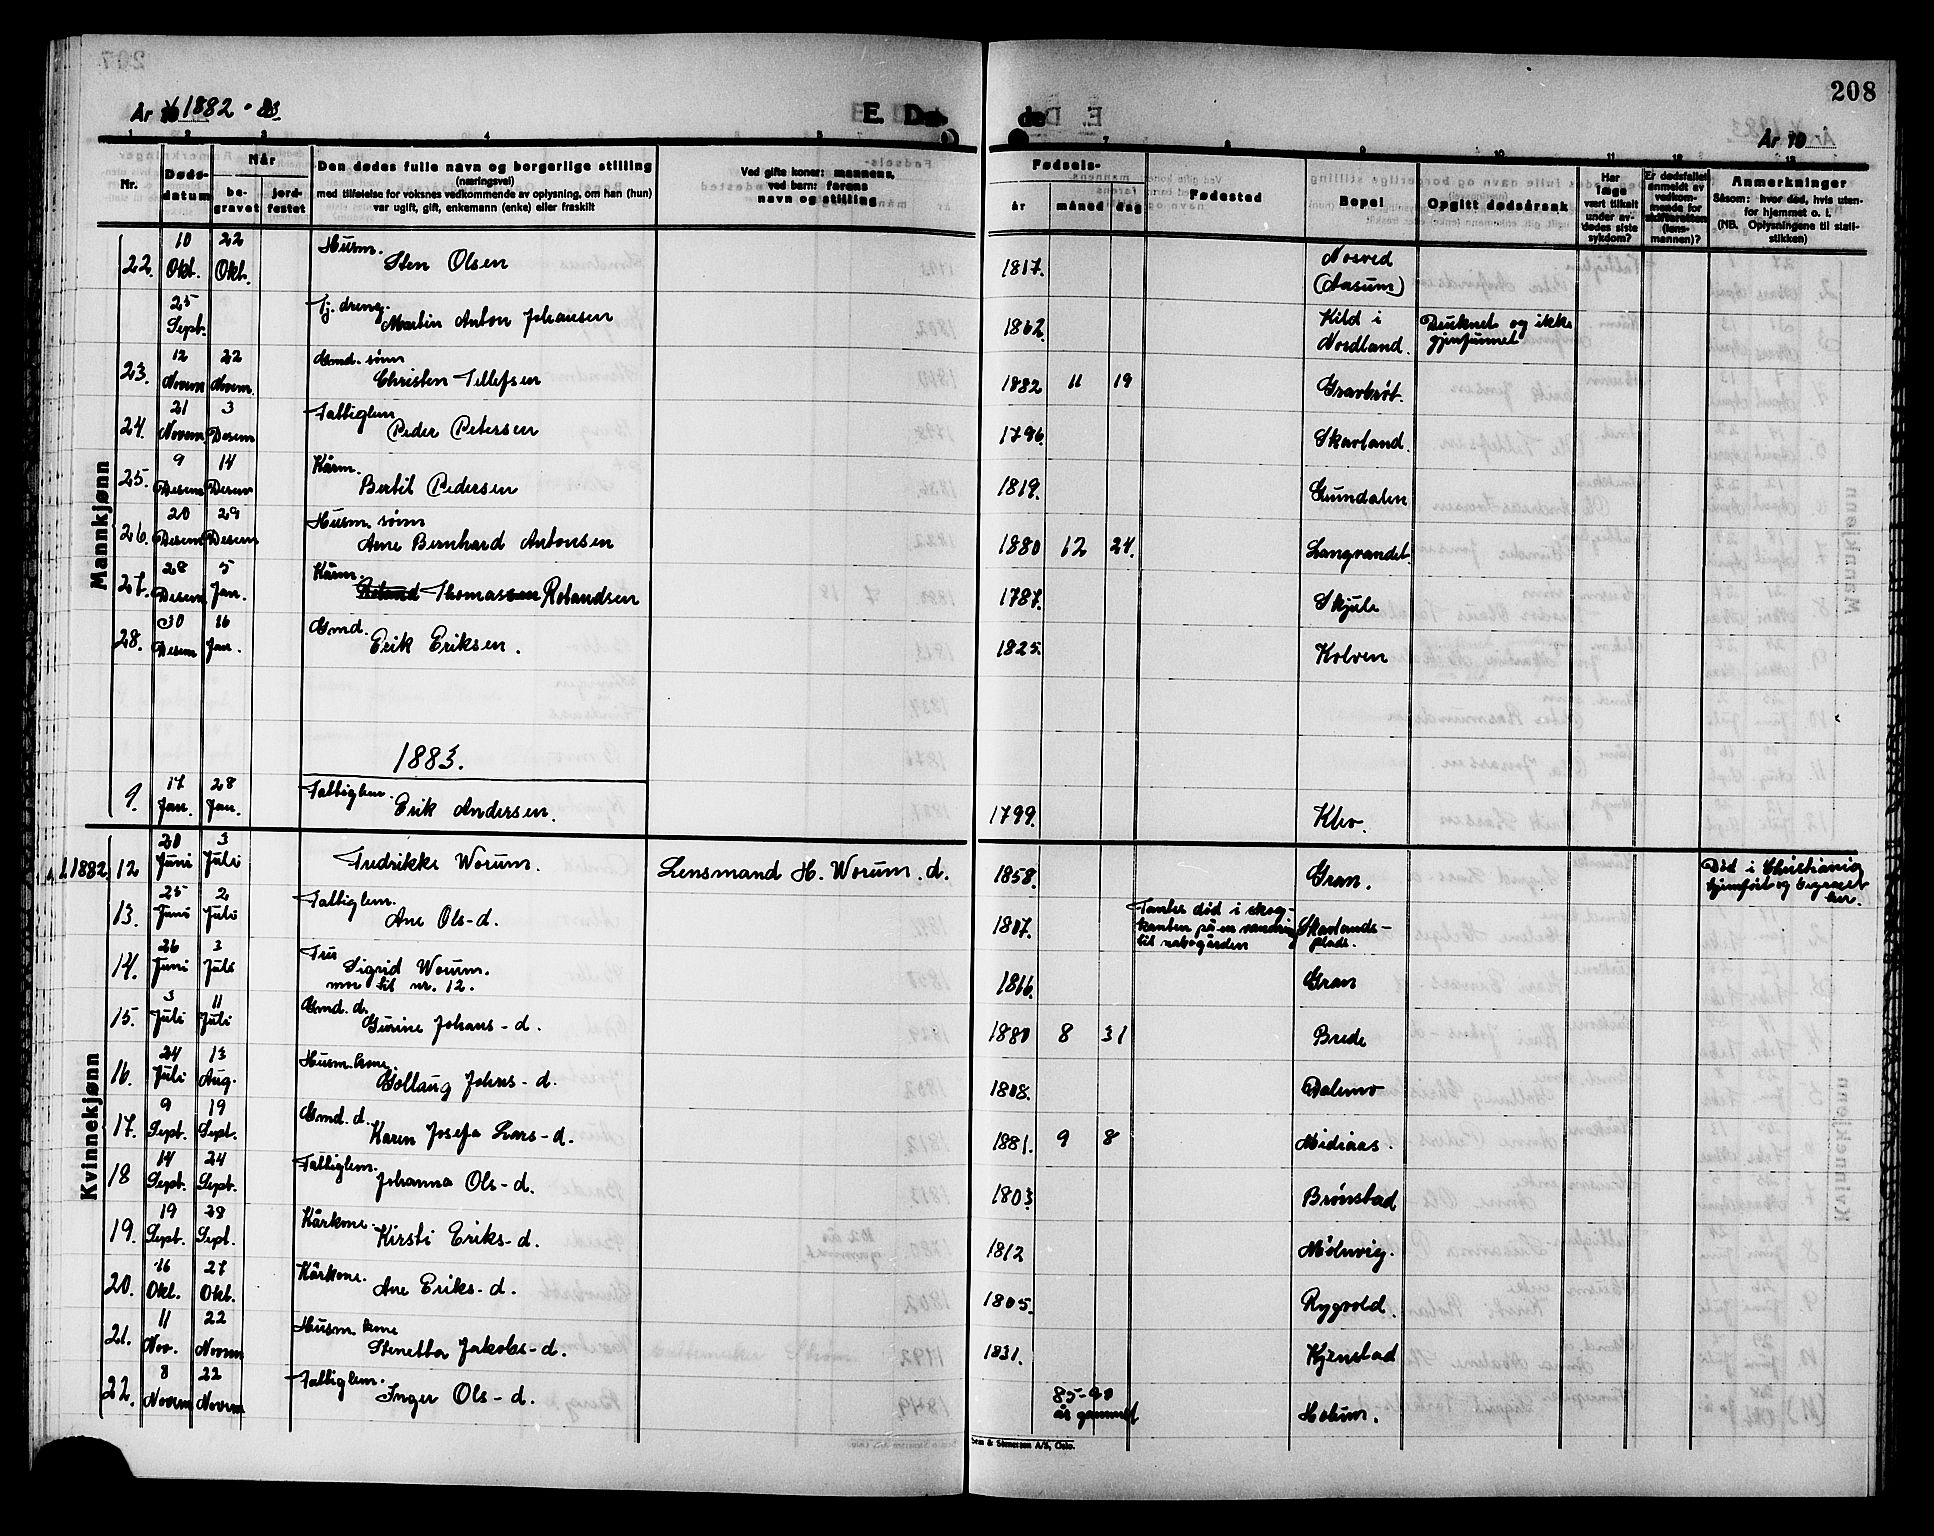 208
År 1882-83
E. Dø-
de
År 19
1 2 3 4 5 7 8 9 10 11 12 13
Nr.
Døds-
datum
Når
be-
gravet
jord-
festet
Den dødes fulle navn og borgerlige stilling
(næringsvei)
med tilføielse for voksnes vedkommende av oplysning, om han (hun)
var ugift, gift, enkemann (enke) eller fraskilt
Ved gifte koner: mannens,
ved barn: farens
navn og stilling
Fødsels-
år måned dag
Fødested
Bopel
Opgitt dødsårsak
Har
læge
vært tilkalt
under av-
dødes siste
sykdom?
Er dødsfallet
anmeldt av
vedkom-
mende for
skifteretten
(lens-
mannen)?
Anmerkninger
Såsom: hvor død, hvis uten-
for hjemmet o. l.
(NB. Oplysningene til stati-
stikken)
Mannkjønn
22. 10 Okt. 22 Okt. Husm. Sten Olsen 1817. Nosved (Aasum)
25 Sept. Tj. dreng. Martin Anton Johansen 1862. Kild i Nordland. Druknet og ikke gjenfunnet
23. 12 Novem 22 Novem. Gmd. sønn Christen Tellefsen 1882 11 19 Gravbrøt.
24. 21 Novem 3 Desem Fattiglem Peder Petersen 1796. Skavland.
25. 9 Desem 14 Desem Kårm. Bertil Pedersen 1819. Grundalen
26. 20 Desem 29 Desem Husm. sønn Arne Bernhard Antonsen 1880 12 24. Langvandet.
27. 28 Desem 5 Jan. Kårm. Thomas Rolandsen 1787. Skjule
28. 30 Desem 16 Jan. Gmd. Erik Eriksen. 1825. Kolven
1883.
9. 17 Jan. 28 Jan. Fattiglem. Erik Andersen. 1799. Klev.
Kvinnekjønn
1882 12 20 Juni 3 Juli Fredrikke Worum. Lensmand H. Worum. d. 1858. Gran. Død i Christiania hjemført og begravet her.
13. 25 Juni 2 Juli Fattiglem. Ane Ols-d. 1807. Fantes død i skog-
kanten på en vandring
til nabogården Skavlands-
plads.
14. 26 Juni 3 Juli Frus Sigrid Worum. mor til nr. 12. 1816. Gran
15. 3 Juli 11 Juli Gmd. d. Gurine Johans-d. 1880 8 31 Brede
16. 24 Juli 13 Aug. Husm. kone. Gollaug Johns-d. 1808. Dalemo
17. 9 Sept. 19 Sept. Gmd. d. Karen Josefa Lars-d. 1881. 9 8 Midiaas.
18 14 Sept. 24 Sept. Fattiglem. Johanna Ols-d. 1803 Brønstad
19. 19 Sept. 28 Sept. Kårkone. Kirsti Eriks-d. 1812 Mølnvig.
20. 16 Okt. 27 Okt. Kårkone. Ane Eriks-d. 1805. Rygvold.
21. 11 Nov. 22 Novem Husm. kone Stenetta Jakobs-d. 1831. Kjenstad
22. 8 Novem 22 Novem Fattiglem. Inger Ols-d. 85-90 år gammel Holum.
Sem & Stenersen A/S, Oslo.